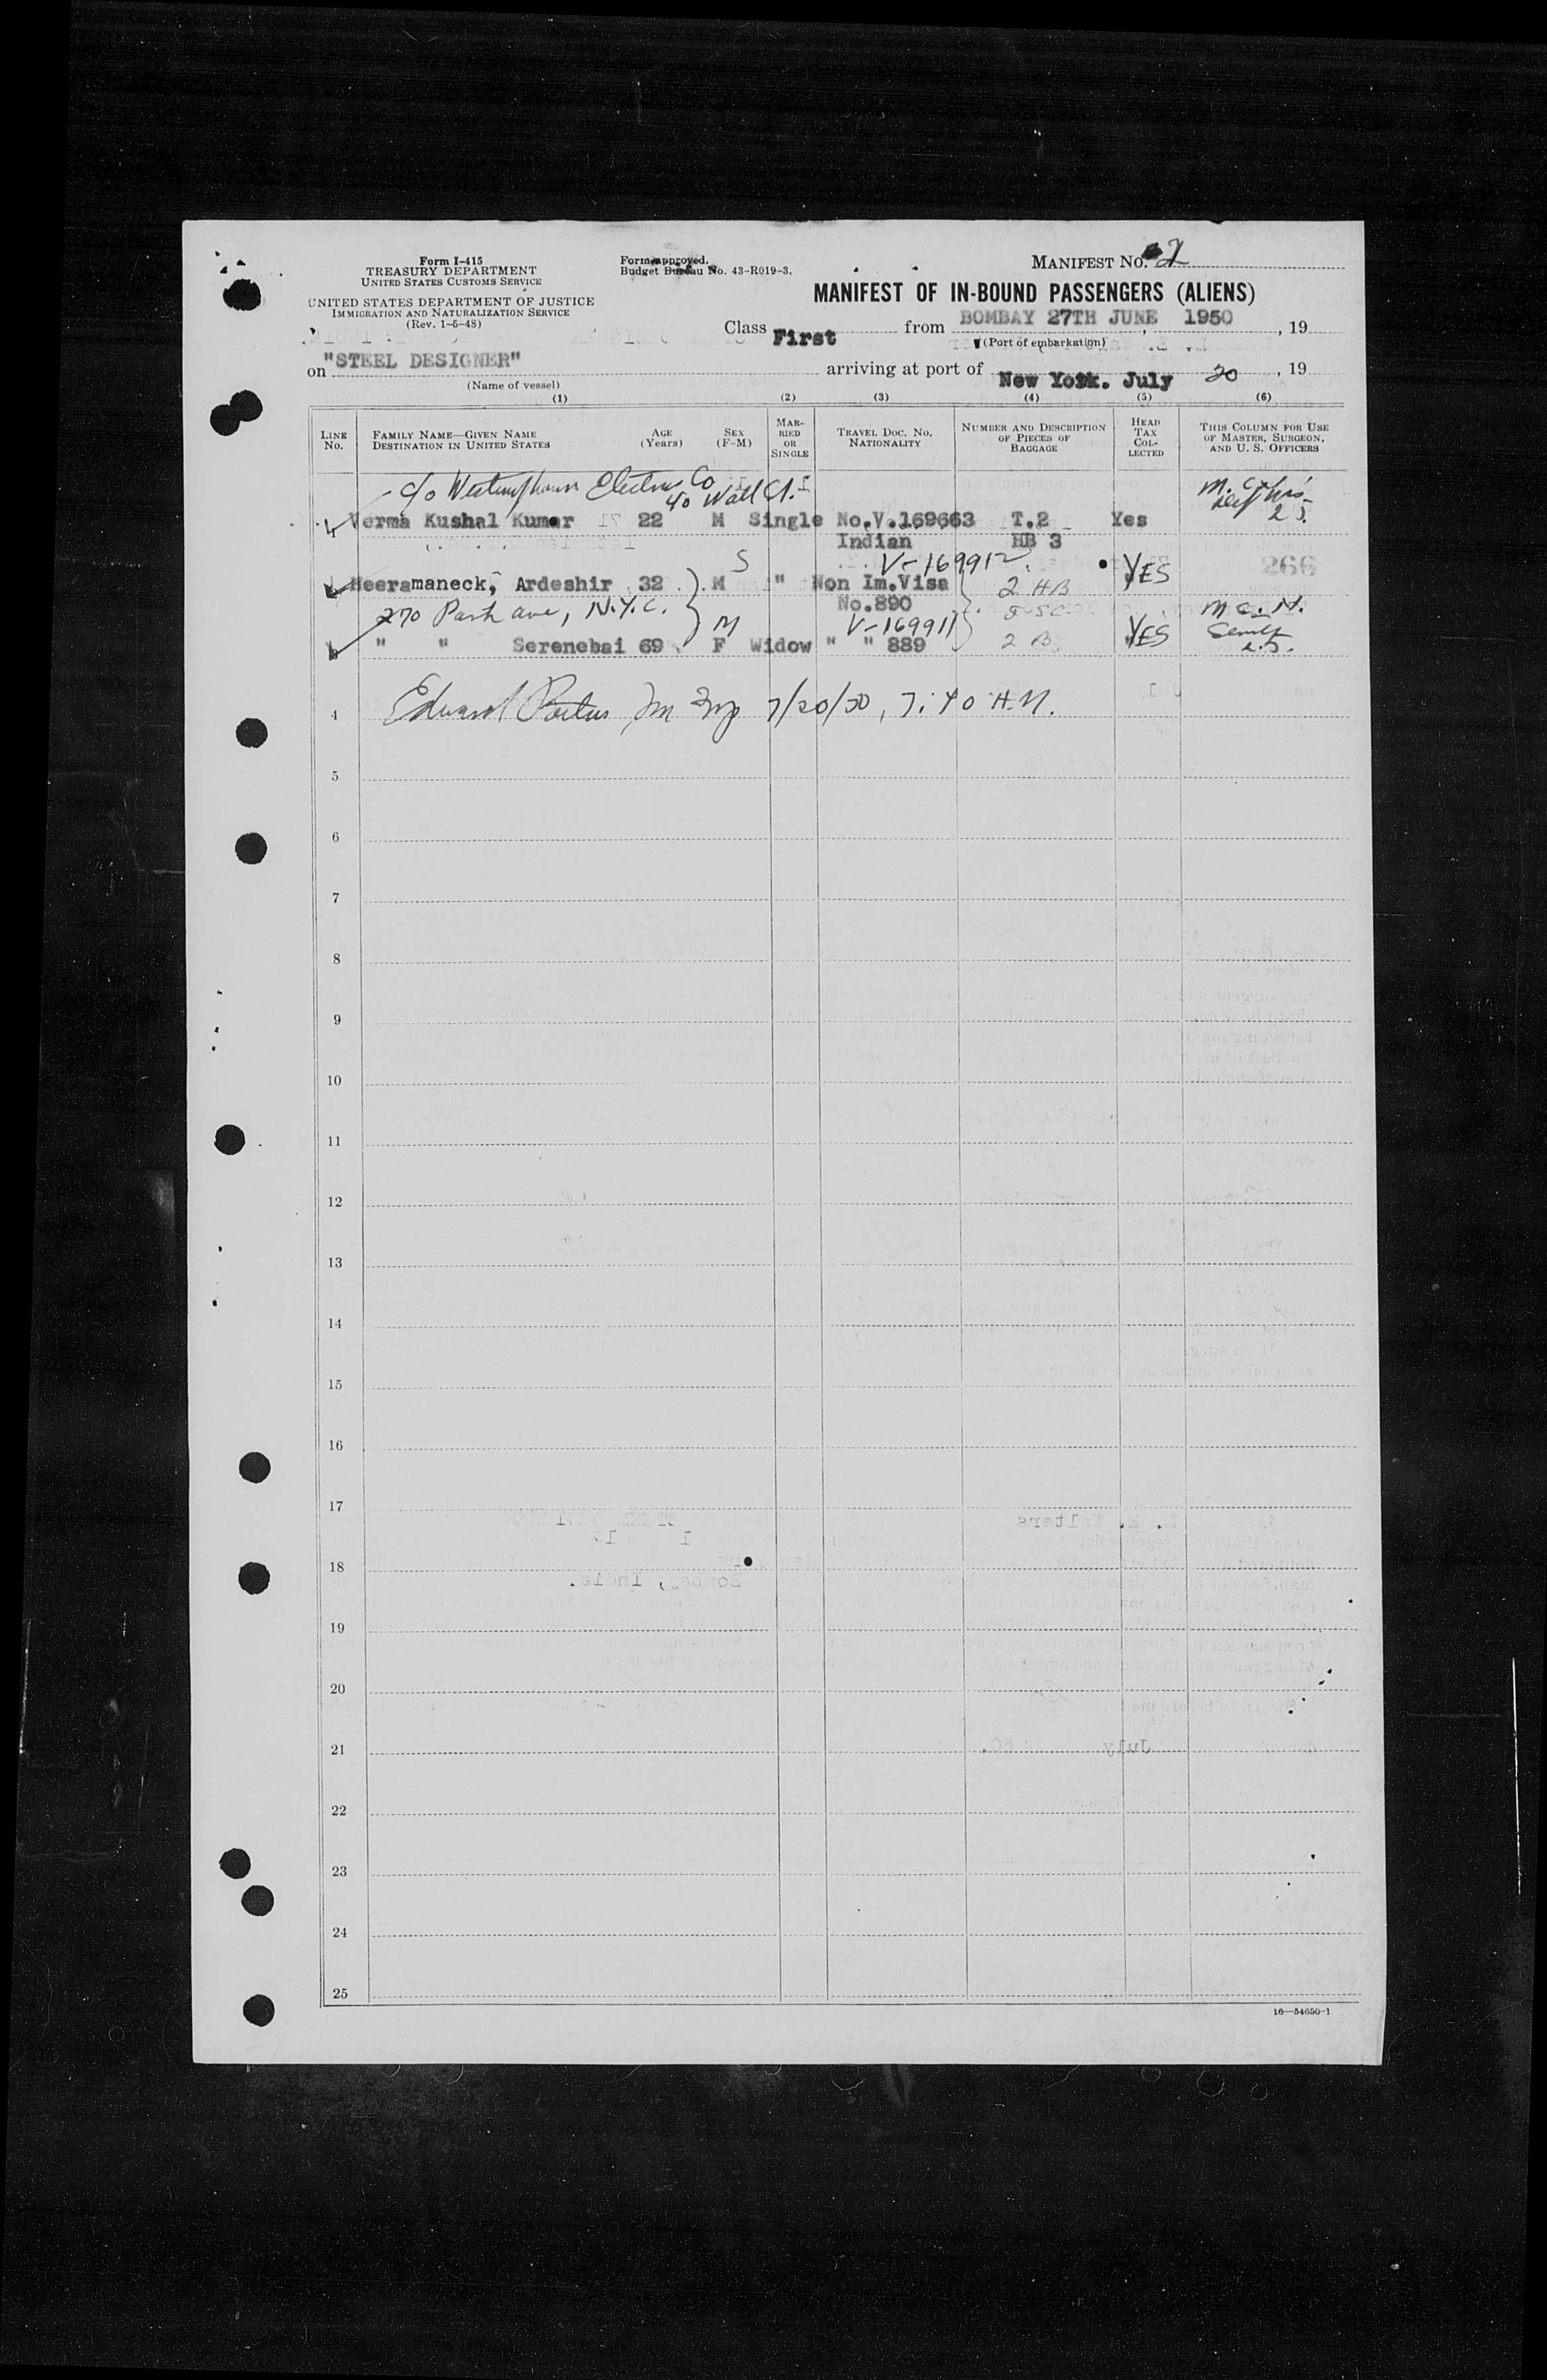 Form I-415
TREASURY DEPARTMENT
UNITED STATES CUSTOMS SERVICE
UNITED STATES DEPARTMENT OF JUSTICE
IMMIGRATION AND NATURALIZATION SERVICE
(Rev. 1-5-48)
Form approved.
Budget Bureau No. 43-R019-3.
MANIFEST NO. 2
MANIFEST OF IN-BOUND PASSENGERS (ALIENS)
Class First from BOMBAY 27TH JUNE 1950, 19
(Port of embarkation)
on "STEEL DESIGNER" arriving at port of New York. July 20, 19
(Name of vessel)
(1) (2) (3) (4) (5) (6)
LINE No. FAMILY NAME—GIVEN NAME DESTINATION IN UNITED STATES AGE (Years) SEX (F-M) MARRIED OR SINGLE TRAVEL DOC. NO. NATIONALITY NUMBER AND DESCRIPTION OF PIECES OF BAGGAGE HEAD TAX COLLECTED THIS COLUMN FOR USE OF MASTER, SURGEON, AND U. S. OFFICERS
c/o Westinghouse Electric Co
40 Wall St.
Verma Kushal Kumar 22 M Single No.V.169663 T.2 Yes
Indian HB 3
S V-169912 YES 266
Heeramaneck, Ardeshir 32 M " Non Im.Visa 2 HB
270 Park Ave, N.Y.C. No.890
M V-169911 YES
" " Serenebai 69 F Widow " " 889 2 B
4 Edward 7/20/50, 7:40 A.M.
5
6
7
8
9
10
11
12
13
14
15
16
17
18
19
20
21
22
23
24
25
16—54650-1